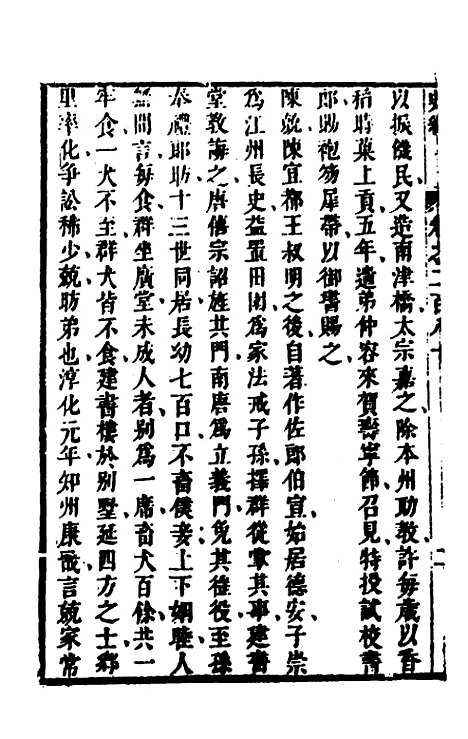 以振饑民又造南津橋太宗嘉之除本州助教許每歲以香
稻時菓上貢五年遣弟仲容來賀壽寧節召見特授試校書
郎賜袍笏犀帶以御書賜之
陳兢陳宜都王叔明之後自著作佐郎伯宣始居德安子崇
爲江州長史益置田園爲家法戒子孫擇群從掌其事建書
堂教誨之唐僖宗詔旌其門南唐爲立義門免其徭役至孫
奉禮郎昉十三世同居長幼七百口不畜僕妾上下姻睦人
無間言每食群坐廣堂未成人者别爲一席畜犬百餘共一
牢食一犬不至群犬皆不食建書樓於别墅延四方之士鄉
里率化爭訟稀少兢昉弟也淳化元年知州康戬言兢家常